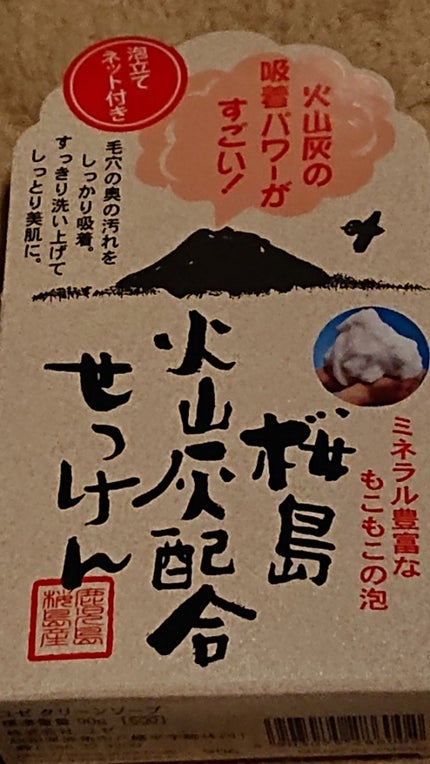 泡立て
ネット付き
火山灰の
吸着パワーが
すごい!
毛穴の奥の汚れを
しっかり吸着。
すっきり洗い上げて
しっとり美肌に。
桜島
火山灰配合
せっけん
ミネラル豊富な
もこもこの泡
鹿児島
桜島産